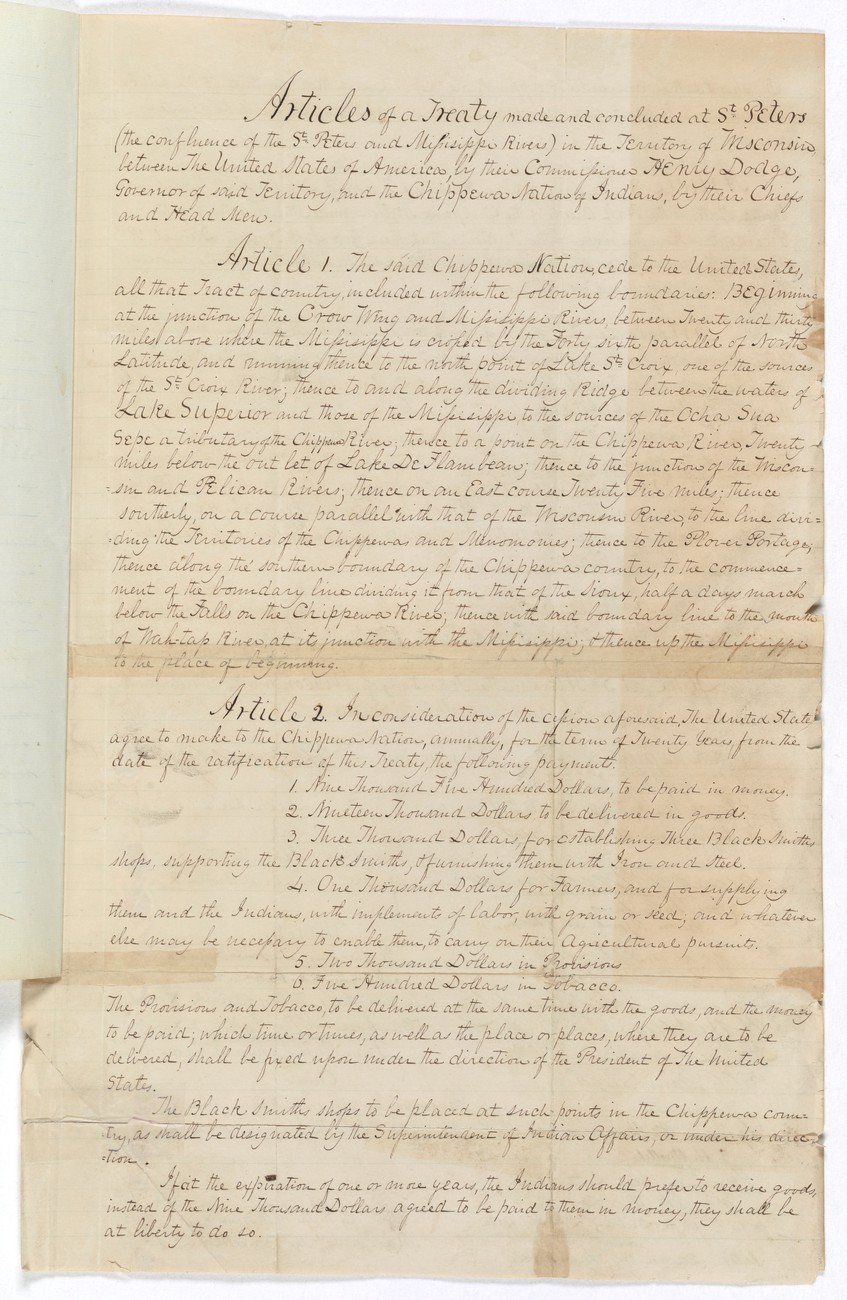 Articles of a Treaty made and concluded at St. Peters
(the confluence of the St. Peters and Missisippi Rivers) in the Territory of Wisconsin
between The United States of America, by their Commissioner Henry Dodge,
Governor of said Territory, and the Chippewa Nation of Indians, by their Chiefs
and Head Men.
Article 1. The said Chippewa Nation, cede to the United States,
all that Tract of country, included within the following boundaries: Beginning
at the junction of the Crow Wing and Missisippi Rivers, between Twenty and thirty
miles above where the Missisippi is crossed by the Forty sixth parallel of North
Latitude, and running thence to the north point of Lake St. Croix, one of the sources
of the St. Croix River; thence to and along the dividing Ridge between the waters of
Lake Superior and those of the Missisippi, to the sources of the Ocha Sua
Sepe a tributary of the Chippewa River; thence to a point on the Chippewa River, Twenty
miles below the out let of Lake De Flambeau; thence to the junction of the Wiscon=
=sin and Pelican Rivers; thence on an East course Twenty Five miles; thence
southerly, on a course parallel with that of the Wisconsin River, to the line divi=
=ding the Territories of the Chippewas and Menomonies; thence to the Plover Portage;
thence along the southern boundary of the Chippewa country, to the commence=
ment of the boundary line dividing it from that of the Sioux, half a days march
below the Falls on the Chippewa River; thence with said boundary line to the mouth
of Wah-tap River, at its junction with the Missisippi; & thence up the Missisippi
to the place of beginning.
Article 2. In consideration of the cession aforesaid, The United States
agree to make to the Chippewa Nation, annually, for the term of Twenty Years, from the
date of the ratification of this Treaty, the following payments.
1. Nine Thousand Five Hundred Dollars, to be paid in money.
2. Nineteen Thousand Dollars, to be delivered in goods.
3. Three Thousand Dollars, for establishing Three Black Smiths
shops, supporting the Black Smiths, & furnishing them with Iron and Steel.
4. One Thousand Dollars for Farmers, and for supplying
them and the Indians, with implements of labor, with grain or seed; and whatever
else may be necessary to enable them, to carry on their Agricultural pursuits.
5. Two Thousand Dollars in Provisions
6. Five Hundred Dollars in Tobacco.
The Provisions and Tobacco, to be delivered at the same time with the goods, and the money
to be paid; which time or times, as well as the place or places, where they are to be
delivered, shall be fixed upon under the direction of the President of The United
States.
The Black Smiths shops to be placed at such points in the Chippewa coun=
=try, as shall be designated by the Superintendent of Indian Affairs, or under his direc=
=tion.
If at the expiration of one or more years, the Indians should prefer to receive goods,
instead of the Nine Thousand Dollars agreed to be paid to them in money, they shall be
at liberty to do so.